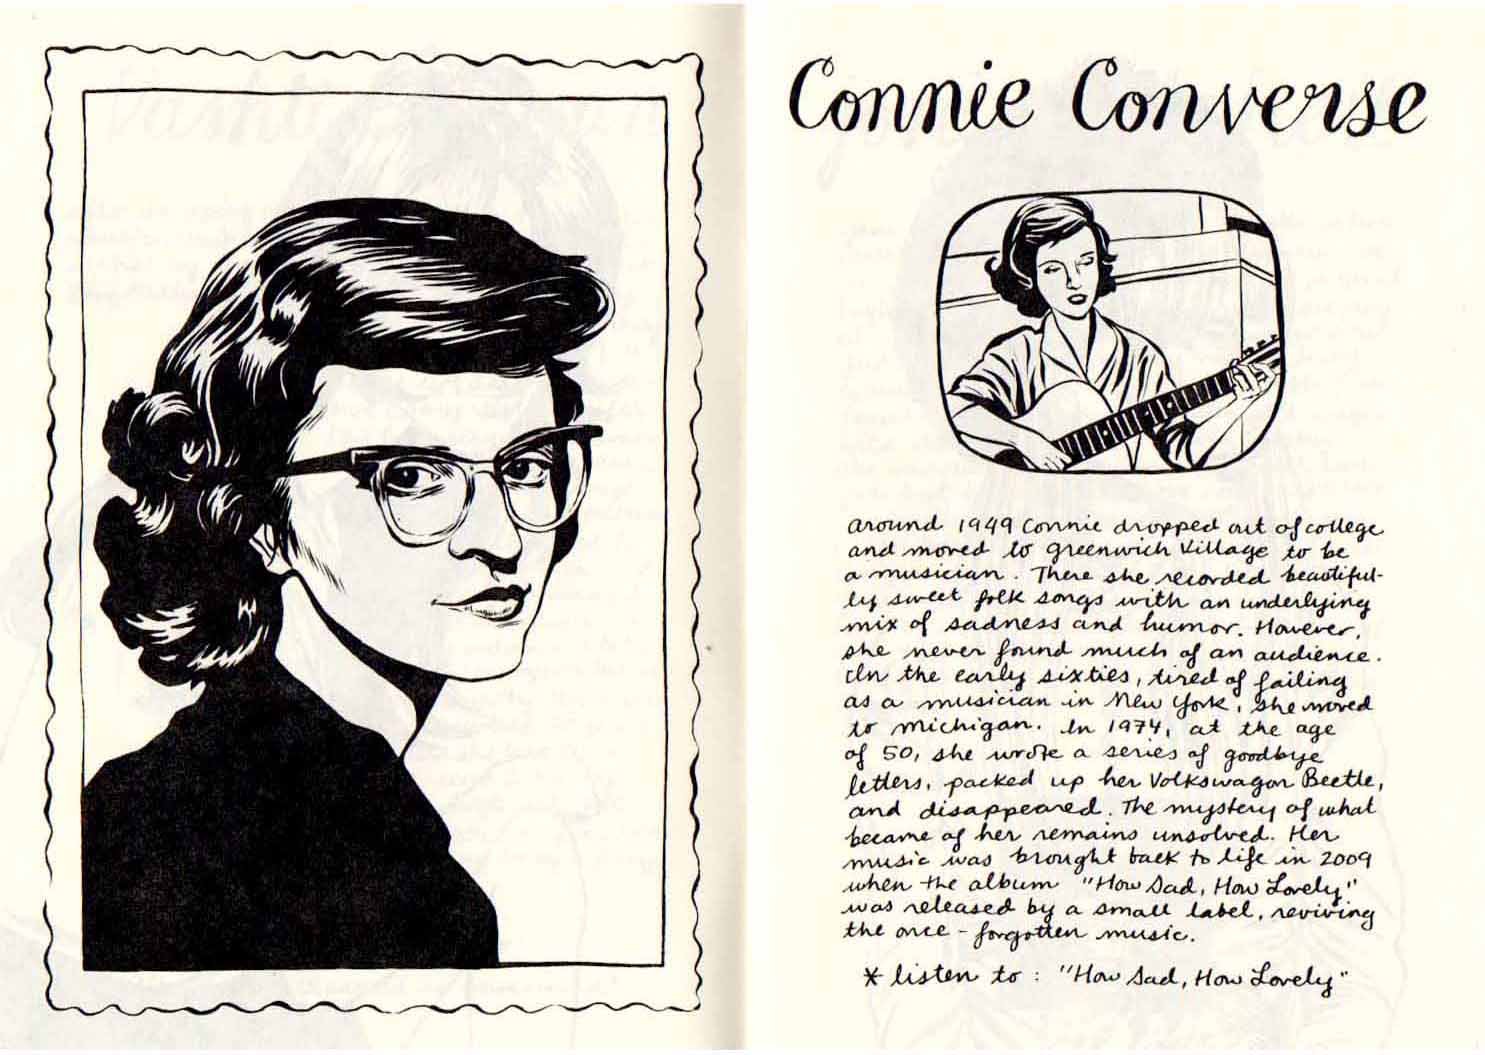 Connie Converse
around 1949 Connie dropped out of college
and moved to Greenwich Village to be
a musician. There she recorded beautiful-
ly sweet folk songs with an underlying
mix of sadness and humor. However,
she never found much of an audience.
In the early sixties, tired of failing
as a musician in New York, she moved
to Michigan. In 1974, at the age
of 50, she wrote a series of goodbye
letters, packed up her Volkswagon Beetle,
and disappeared. The mystery of what
became of her remains unsolved. Her
music was brought back to life in 2009
when the album "How Sad, How Lovely"
was released by a small label, reviving
the once-forgotten music.
* listen to: "How Sad, How Lovely"